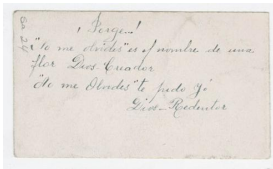 ¡ Jorge...!
"No me olvides" es el nombre de una
flor Dios-Creador
"No me Olvides" te pido yo
Dios-Redentor